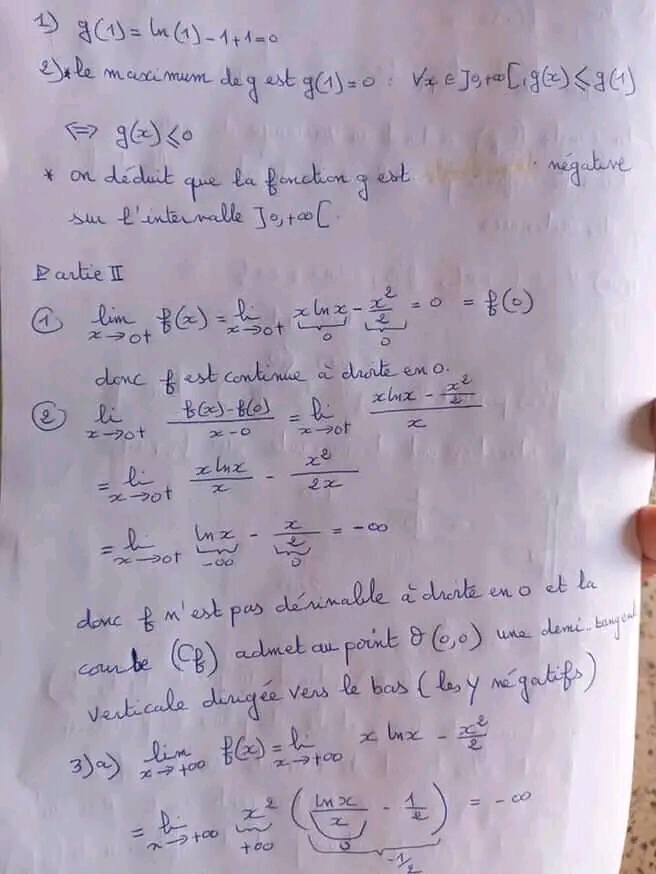 1) g(1) = ln(1) - 1 + 1 = 0
2) * le maximum de g est g(1) = 0 : ∀x ∈ ]0,+∞[, g(x) ⩽ g(1)
⟺ g(x) ⩽ 0
* on déduit que la fonction g est négative
sur l'intervalle ]0,+∞[.
Partie II
① lim x→0+ f(x) = li x→0+ x ln x - x²/2 = 0 = f(0)
0 0
donc f est continue à droite en 0.
② li x→0+ (f(x) - f(0))/(x - 0) = li x→0+ (x ln x - x²/2)/x
= li x→0+ (x ln x)/x - x²/2x
= li x→0+ ln x - x/2 = -∞
-∞ 0
donc f n'est pas dérivable à droite en 0 et la
courbe (Cf) admet au point O(0,0) une demi-tangent
verticale dirigée vers le bas (les y négatifs)
3) a) lim x→+∞ f(x) = li x→+∞ x ln x - x²/2
= li x→+∞ x² (ln x/x - 1/2) = -∞
+∞ 0
-1/2